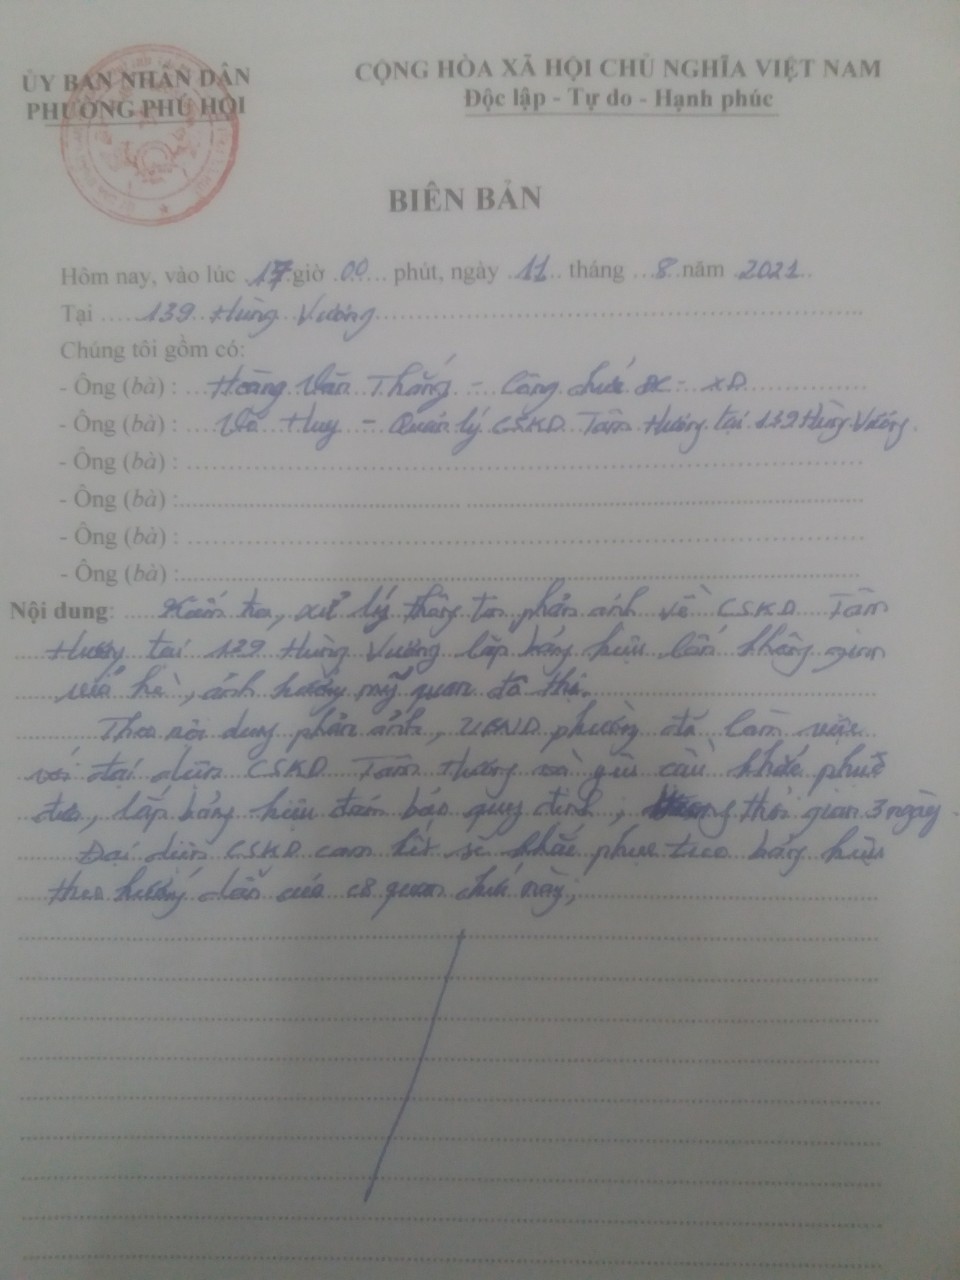 ỦY BAN NHÂN DÂN
PHƯỜNG PHÚ HỘI
CỘNG HÒA XÃ HỘI CHỦ NGHĨA VIỆT NAM
Độc lập - Tự do - Hạnh phúc
BIÊN BẢN
Hôm nay, vào lúc 17 giờ 00 phút, ngày 11 tháng 8 năm 2021
Tại 139 Hùng Vương
Chúng tôi gồm có:
- Ông (bà) : Hoàng Văn Thắng - Công chức ĐC - XD
- Ông (bà) : Võ Huy - Quản lý CSKD Tâm Hương tại 139 Hùng Vương.
- Ông (bà) :
- Ông (bà) :
- Ông (bà) :
- Ông (bà) :
Nội dung: Kiểm tra, xử lý thông tin phản ánh về CSKD Tâm
Hương tại 139 Hùng Vương lắp bảng hiệu lấn không gian
vỉa hè, ảnh hưởng mỹ quan đô thị.
Theo nội dung phản ánh, UBND phường đã làm việc
với đại diện CSKD Tâm Hương và yêu cầu khắc phục
lắp bảng hiệu đảm bảo quy định, thời gian 3 ngày.
Đại diện CSKD cam kết sẽ khắc phục treo bảng hiệu
theo hướng dẫn của cơ quan chức năng;